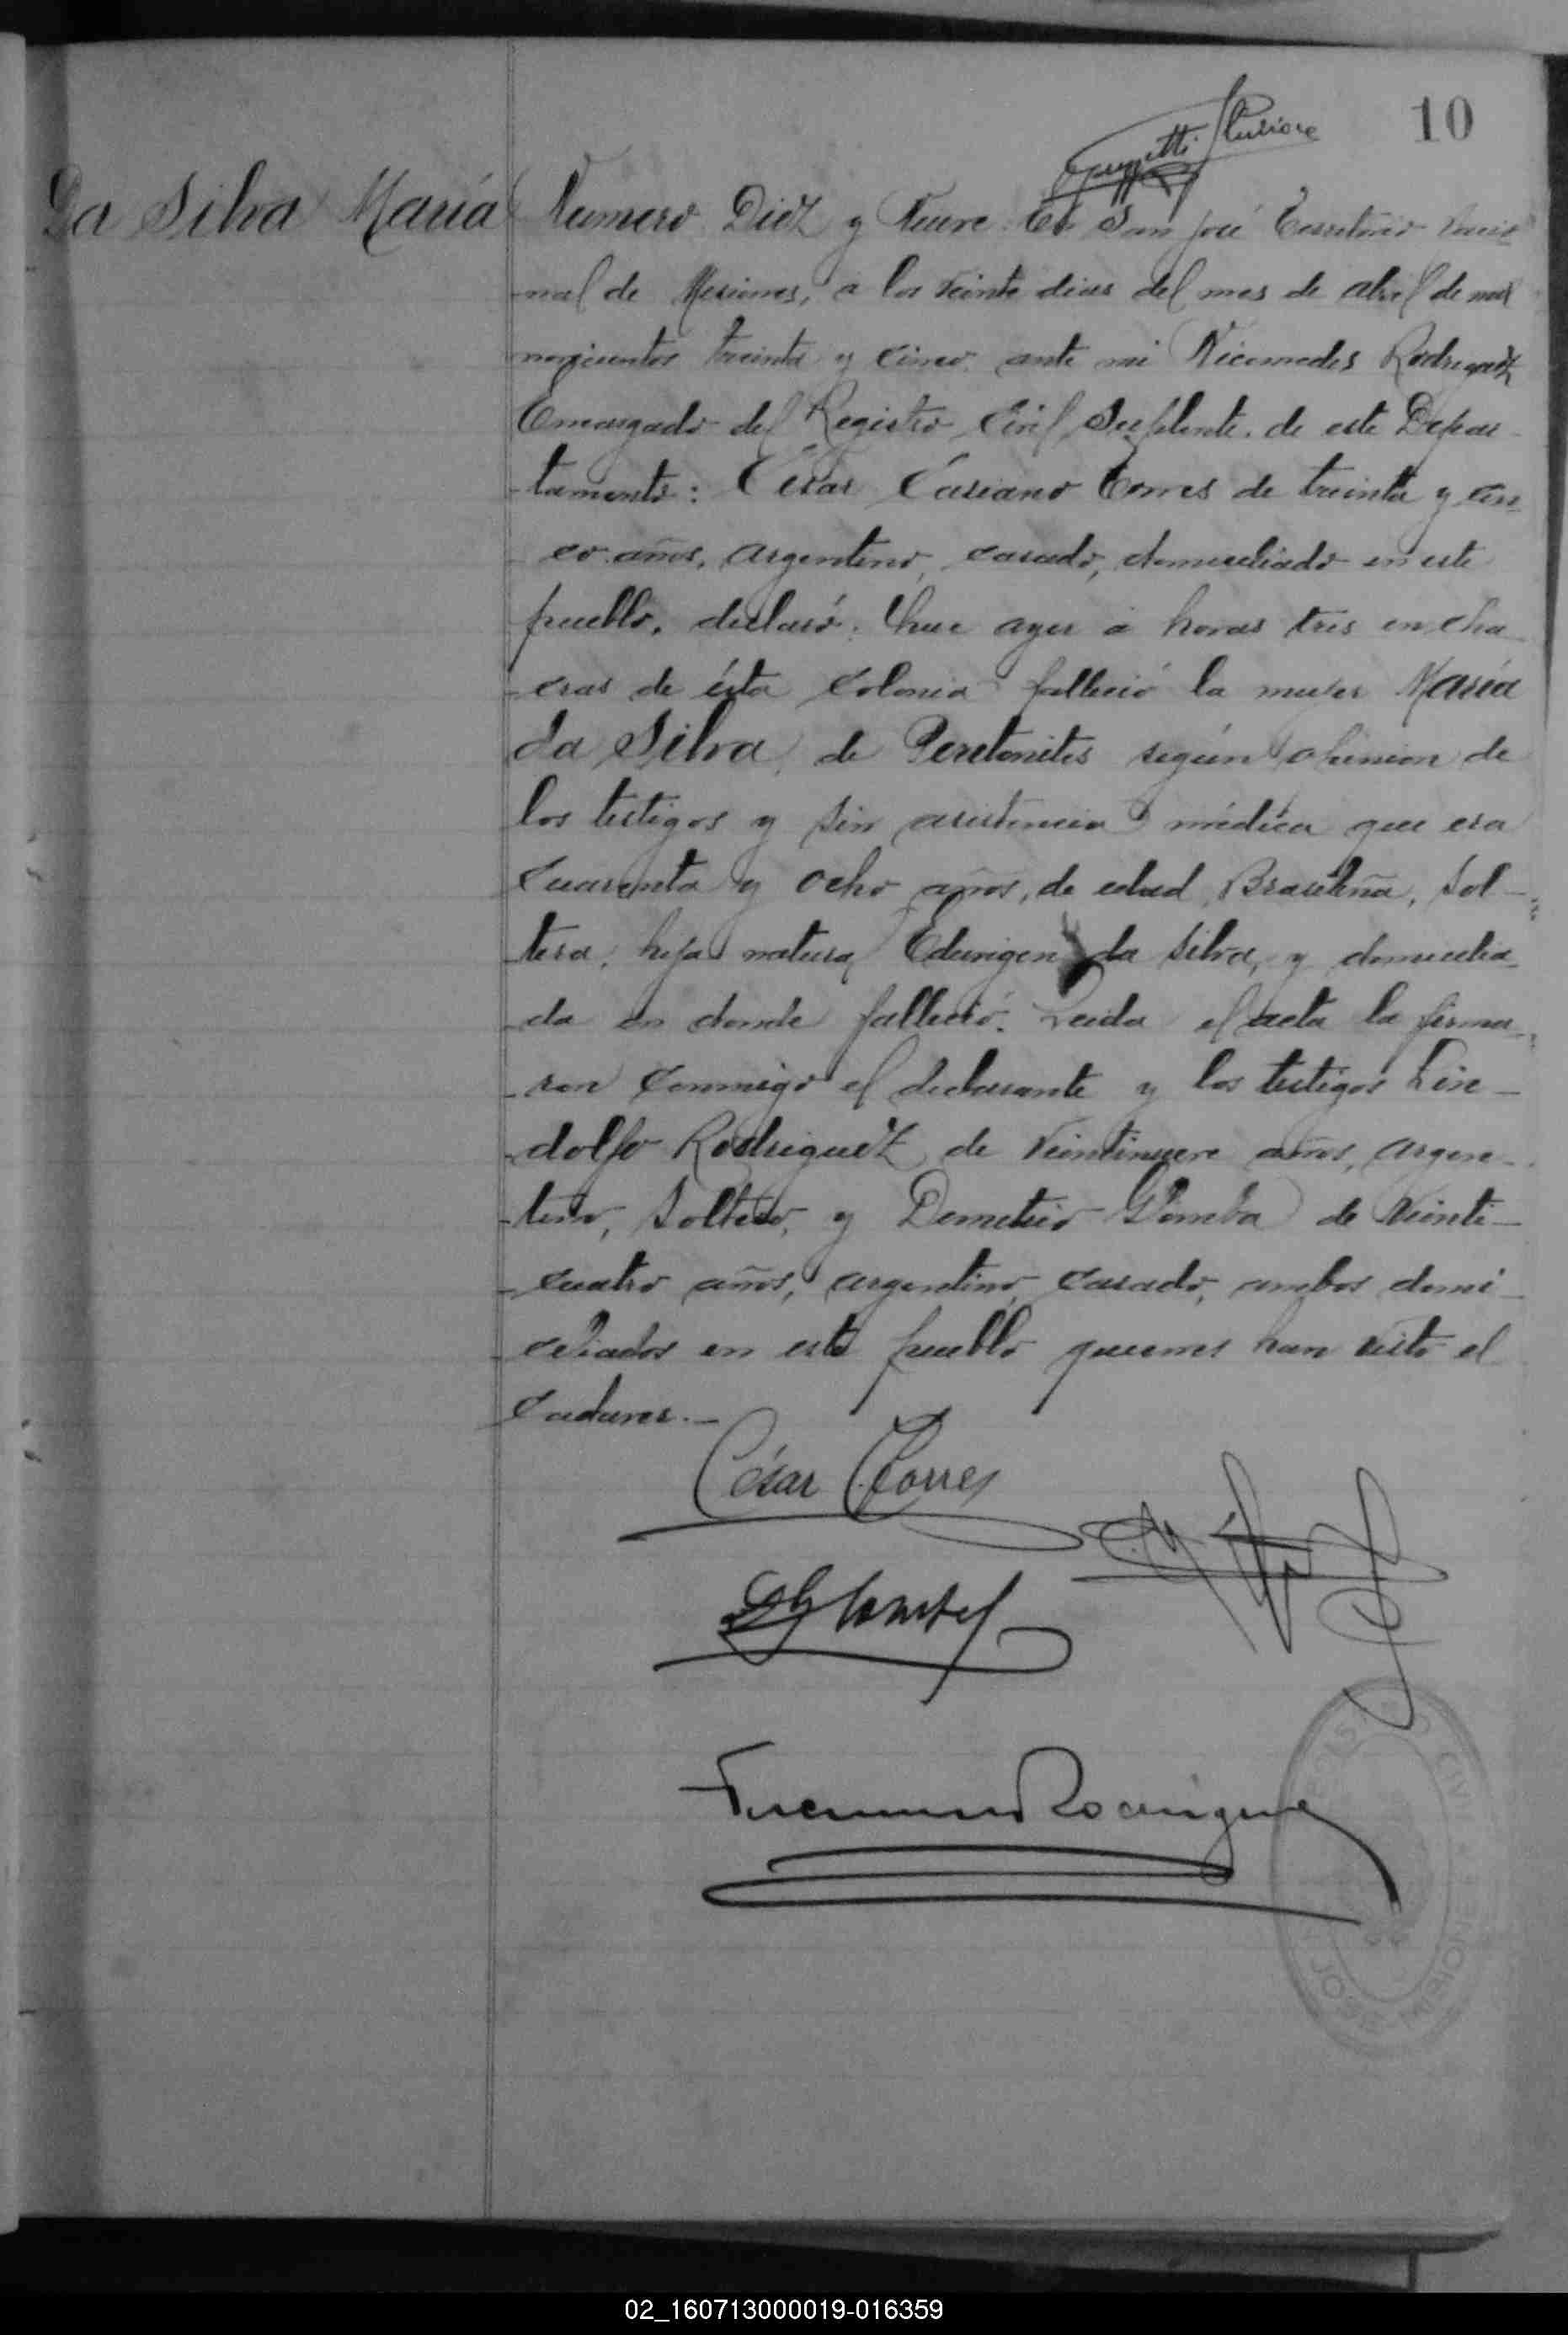 10
Da Silva María
Numero Diez y Nueve En San José Territorio Nacio
nal de Misiones, a los veinte dias del mes de abril de mil
novecientos treinta y cinco. ante mi Nicomedes Rodriguez
Encargado del Registro Civil Suplente. de este Depar-
tamento: César Casiano Torres de treinta y cin
co años, argentino, casado, domiciliado en este
pueblo, declaró: Que ayer a horas tres en cha
cras de ésta Colonia falleció la mujer María
da Silva, de Peretonites según opinion de
los testigos y sin asistencia médica que era
Cuarenta y ocho años, de edad, Brasileña, Sol-
tera, hija natural Eduvigen da Silva, y domicilia
da en donde falleció. Leida el acta la firma
ron conmigo el declarante y los testigos Lin-
dolfo Rodriguez de Veintinueve años, argen-
tino, Soltero, y Demetrio Glomba de Veinti-
cuatro años, argentino, Casado, ambos domi-
ciliados en este pueblo quienes han visto el
Cadaver.-
César C. Torres
Rodriguez
REGISTRO CIVIL
SAN JOSÉ MISIONES
02_160713000019-016359